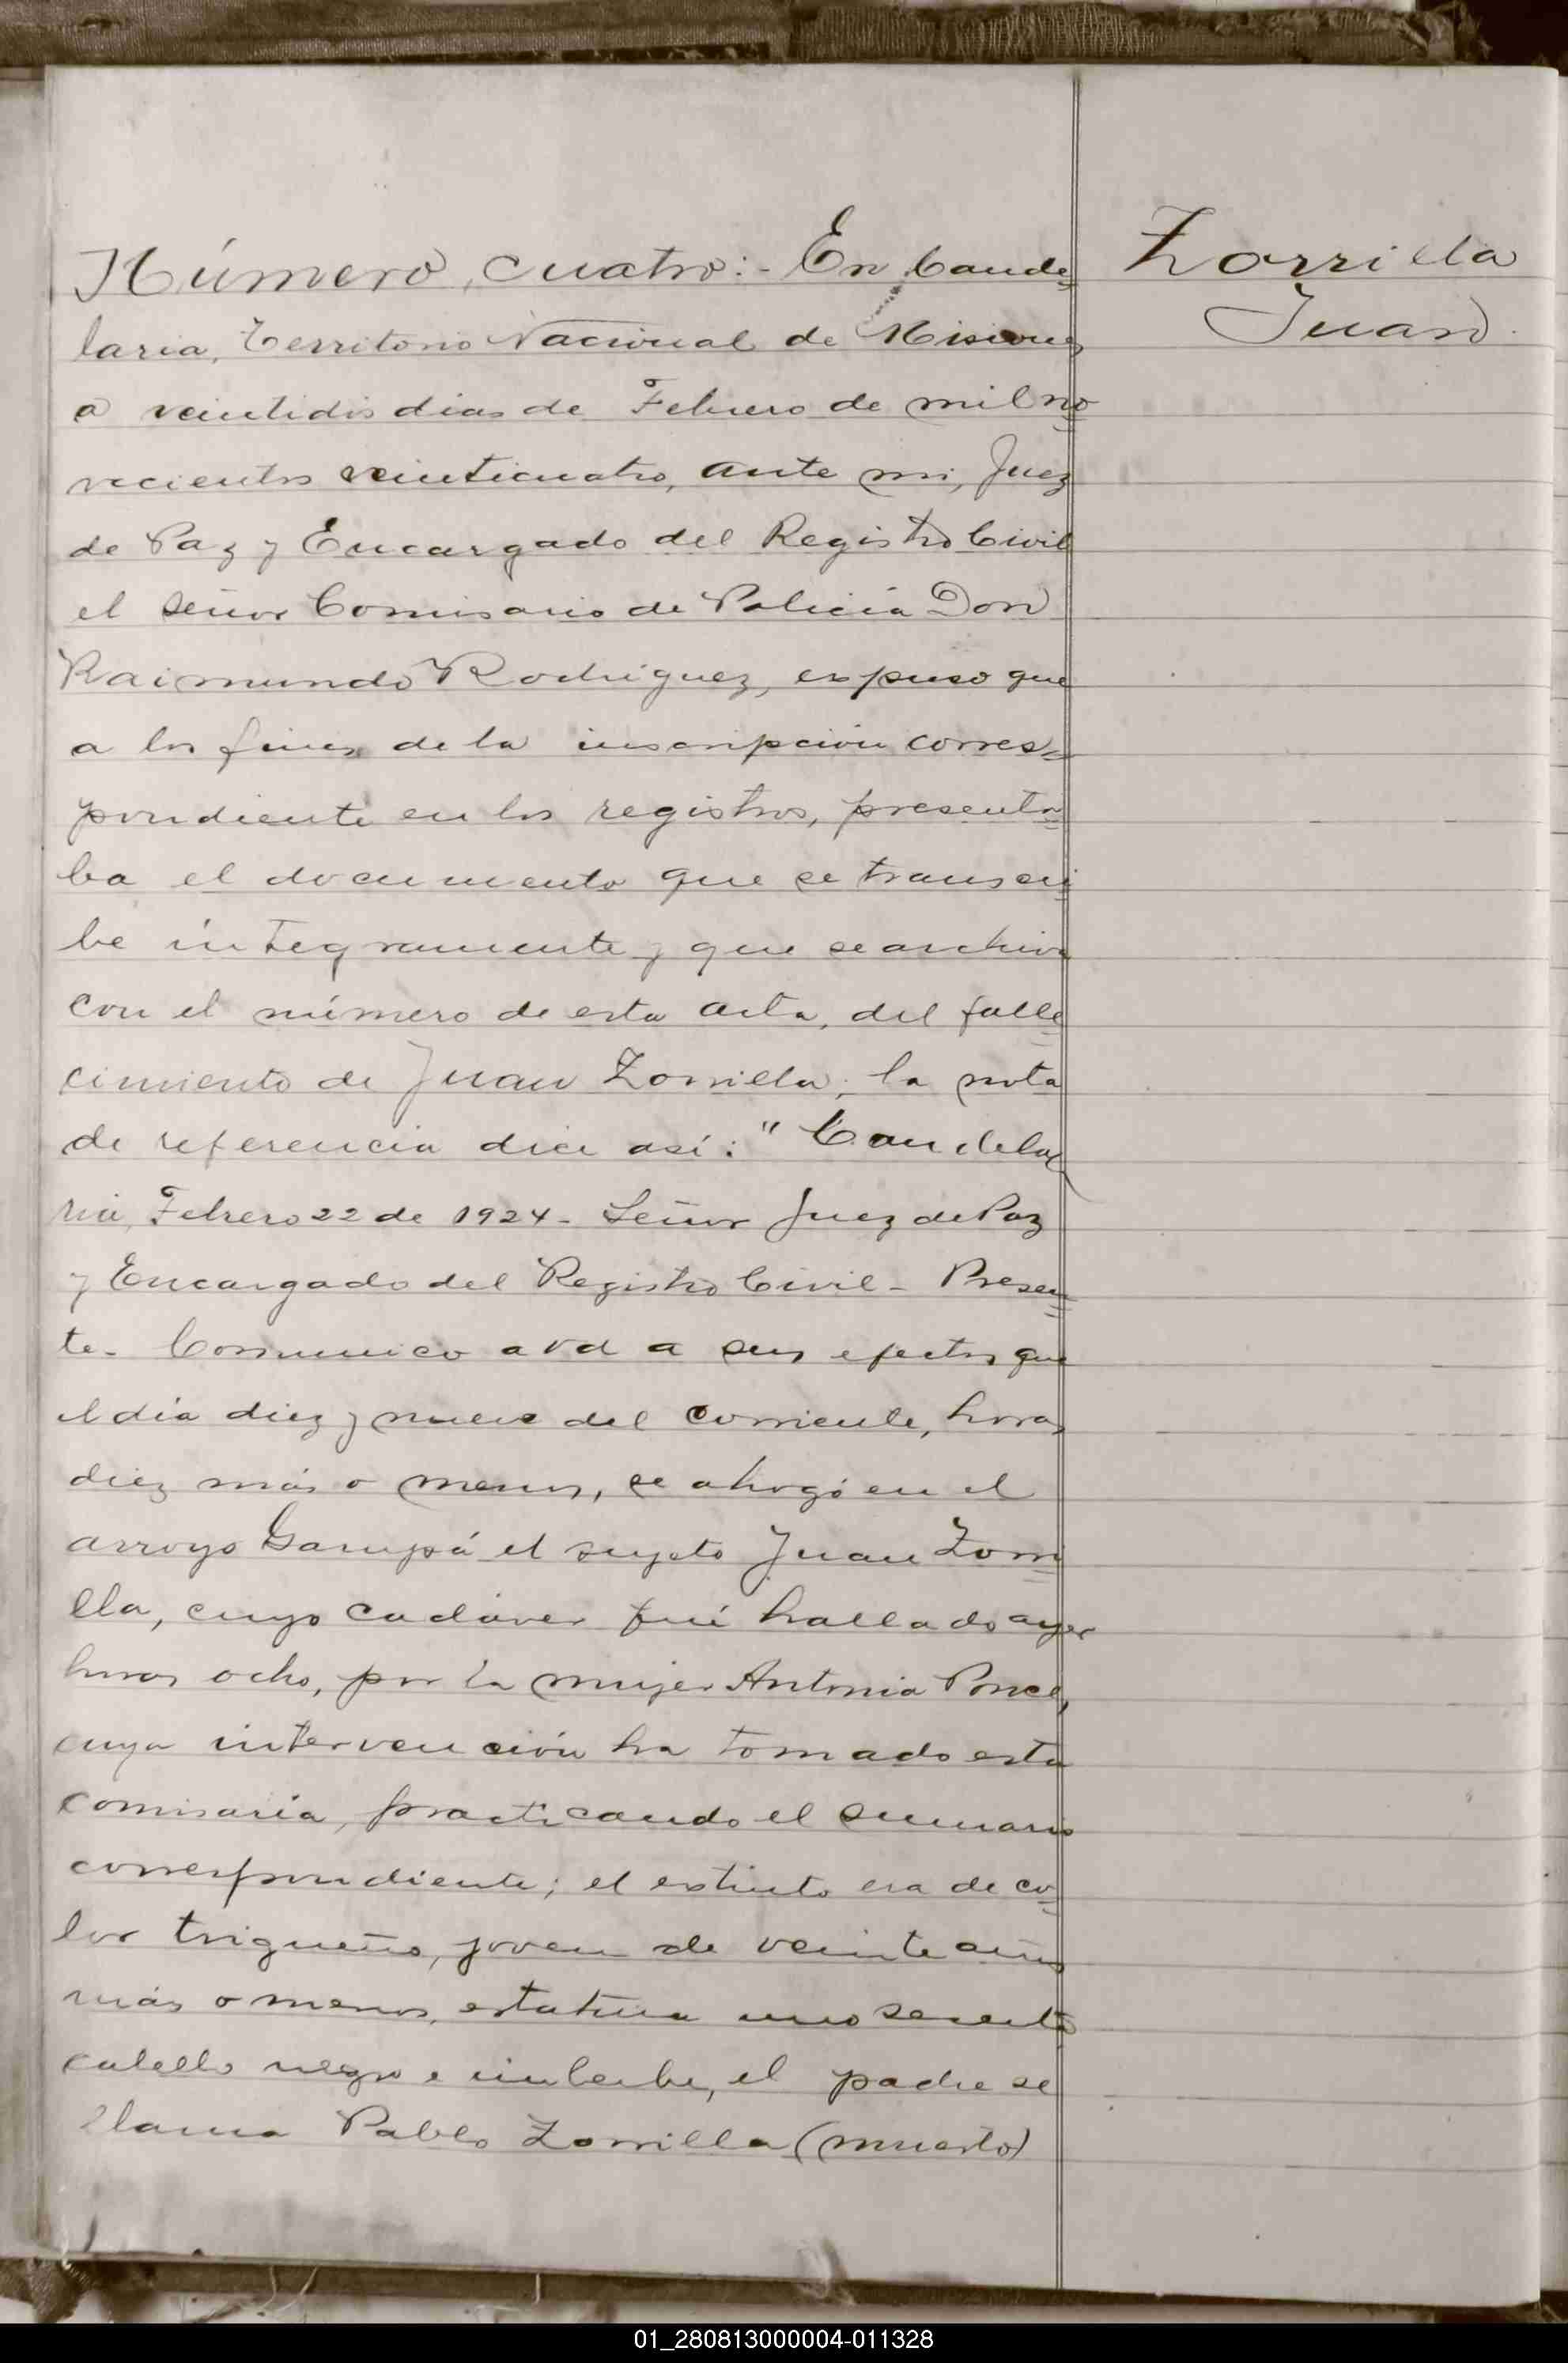 Número cuatro:- En Cande=
laria, Territorio Nacional de Misiones
a veintidis dias de Febrero de mil no=
vecientos veinticuatro, ante mi, Juez
de Paz y Encargado del Registro Civil
el señor Comisario de Policía Don
Raimundo Rodriguez, expuso que
a los fines de la inscripción corres=
pondiente en los registros, presenta=
ba el documento que se transcri
be integramente y que se archiva
con el número de esta acta, del falle
cimiento de Juan Zorrilla; la nota
de referencia dice así: "Candela
ria, Febrero 22 de 1924- Señor Juez de Paz
y Encargado del Registro Civil- Presen=
te- Comunico a Vd a sus efectos que
el día diez y nueve del corriente, horas
diez más o menos, se ahogó en el
arroyo Garupá el sujeto Juan Zorri=
lla, cuyo cadáver fué hallado ayer
horas ocho, por la mujer Antonia Ponce,
cuya intervención ha tomado esta
comisaría, practicando el sumario
correspondiente; el extinto era de co=
lor trigueño, joven de veinte años
más o menos, estatura uno sesenta
cabello negro e imberbe, el padre se
llama Pablo Zorrilla (muerto)
Zorrilla
Juan.
01_280813000004-011328